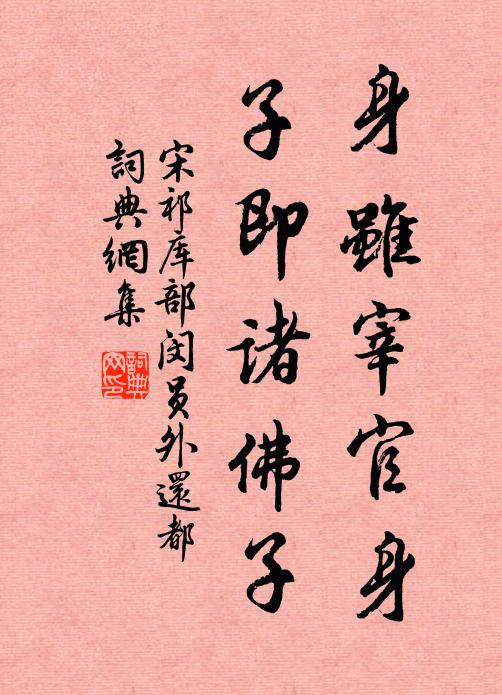 身雖宰官身
子即諸佛子
宋祁库部闵員外還都
詞典網集
詞典網印